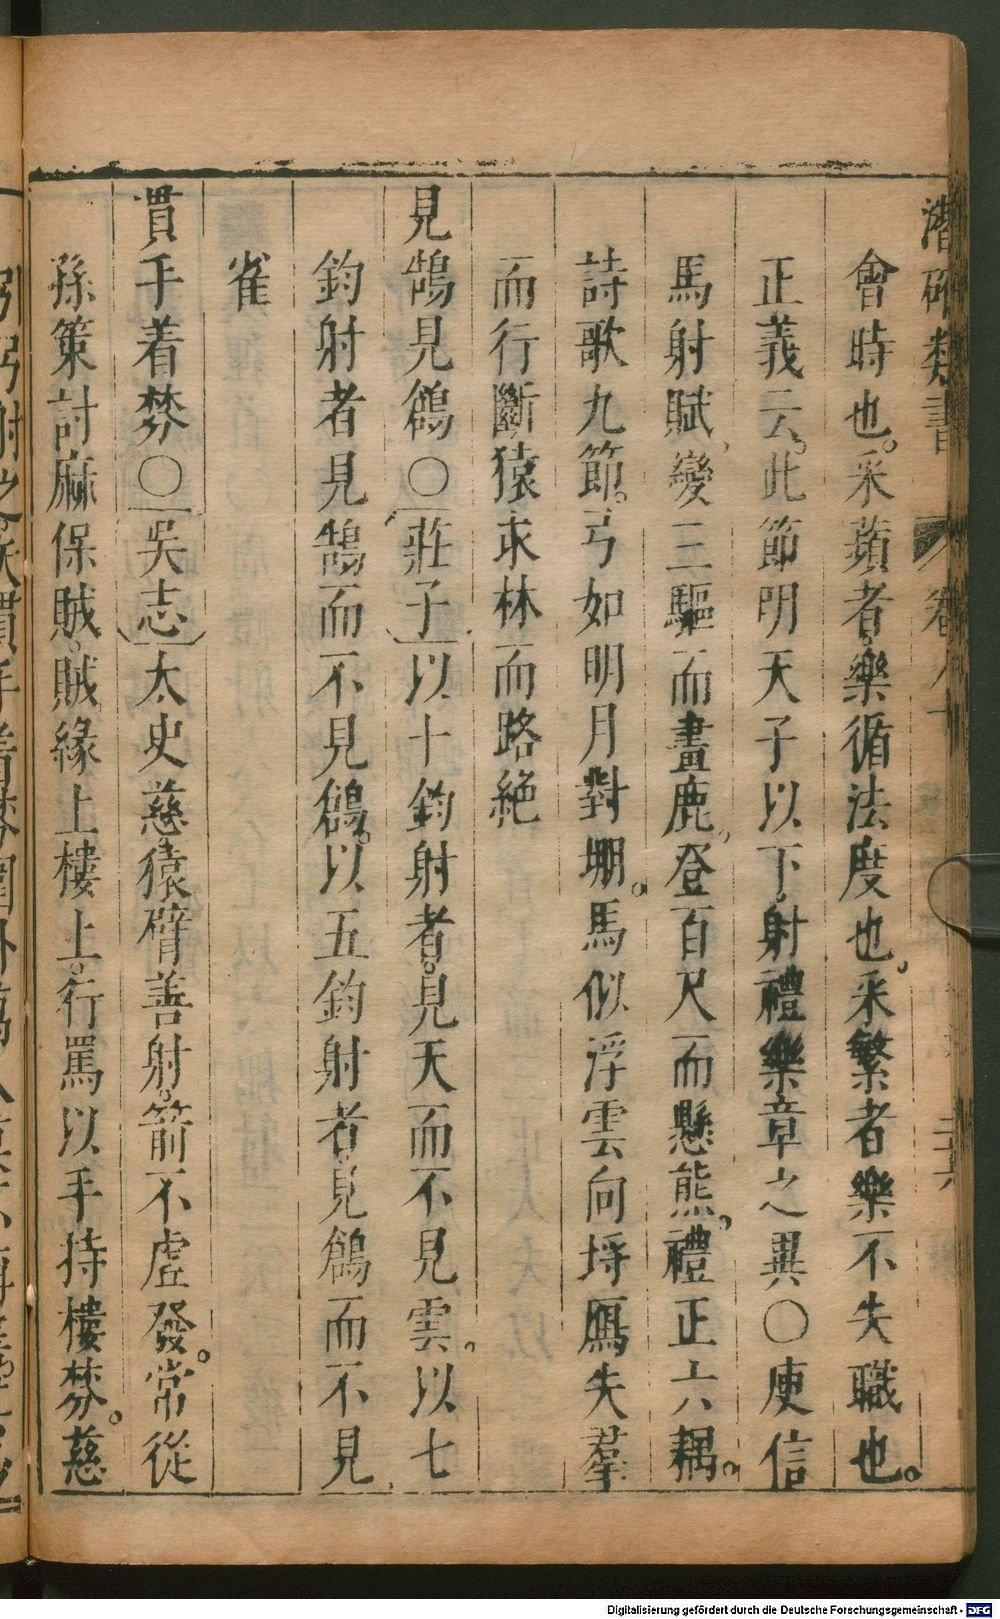 潛確類書 卷八十 三十六
會時也。采蘋者樂循法度也。采繁者樂不失職也。
正義云。此節明天子以下射禮樂章之異〇庾信
馬射賦變三驅而畫鹿。登百尺而懸熊。禮正六耦。
詩歌九節。弓如明月對堋。馬似浮雲向埓鴈失羣
而行斷猿求林而路絶
見鵠見鶬〇莊子以十鈞射者。見天而不見雲。以七
鈞射者見鵠而不見鶬。以五鈞射者見鶬而不見
雀
貫手着棼〇吳志太史慈猿臂善射。箭不虛發。常從
孫策討麻保賊。賊緣上樓上。行罵以手持樓棼。慈
Digitalisierung gefördert durch die Deutsche Forschungsgemeinschaft - DFG